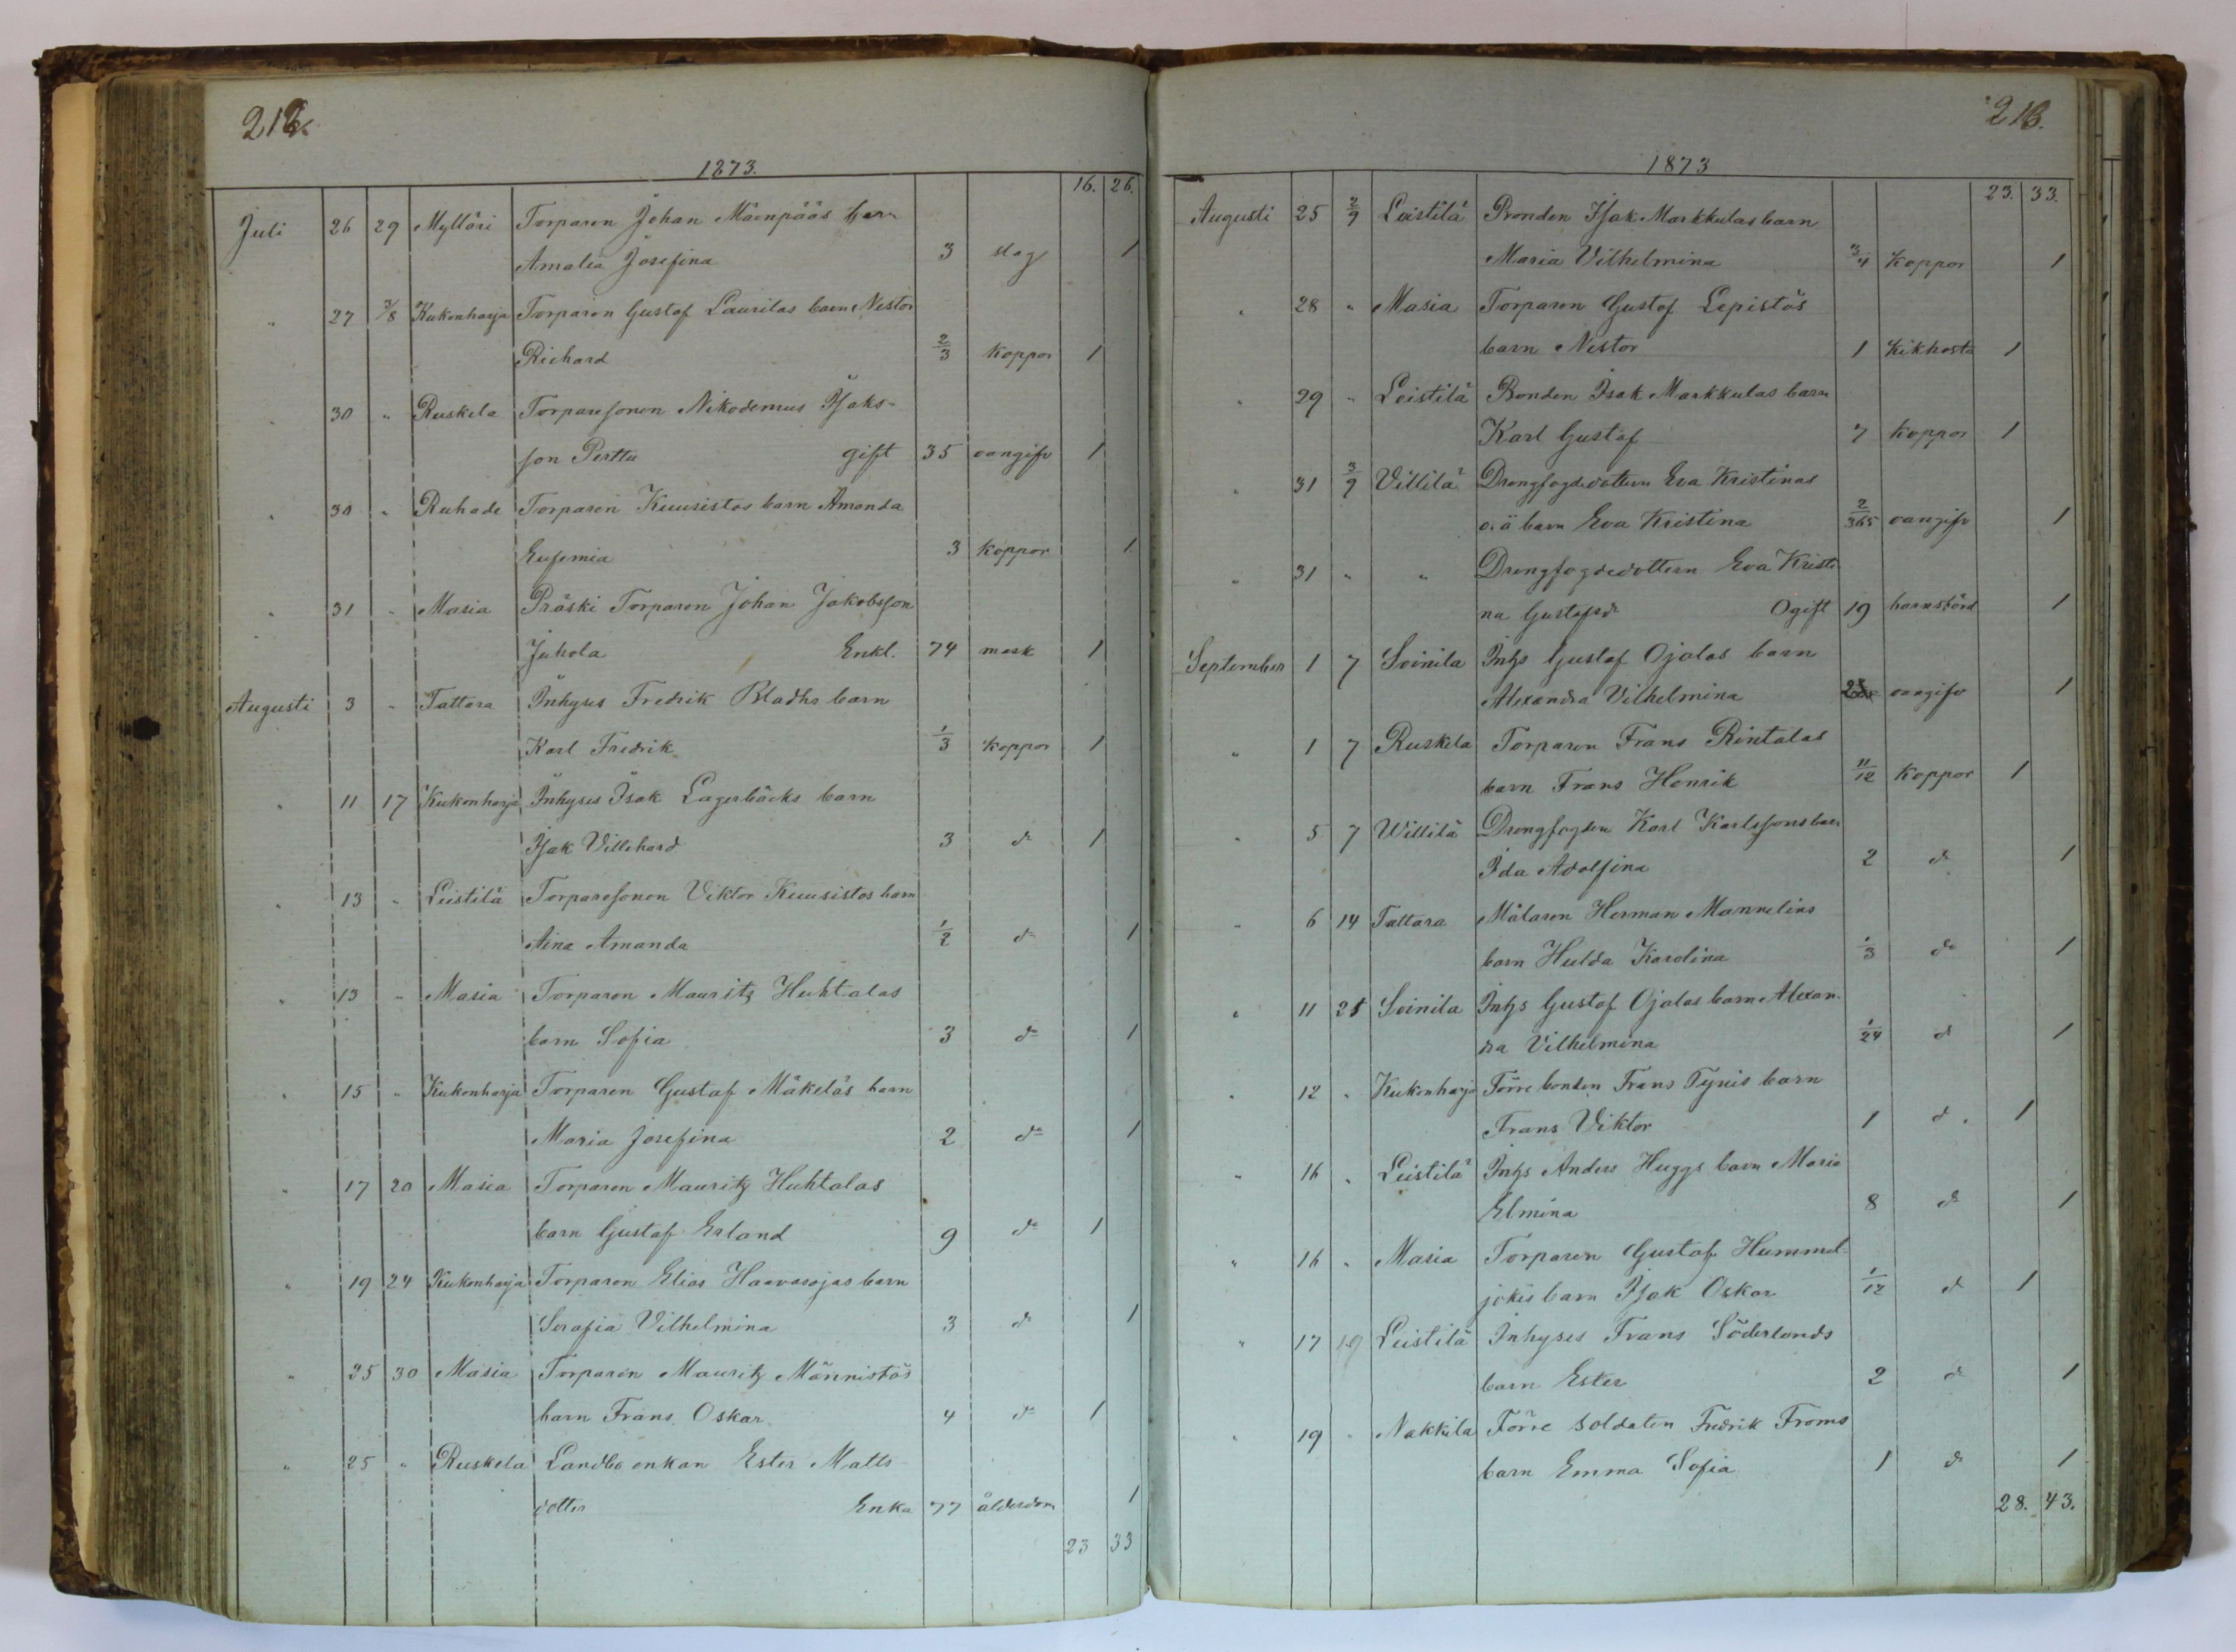 1873.
16. 26.
Juli 26 29 Mylläri Torparen Johan Mäenpääs barn
Amalia Josefina 3 slag 1
" 27 3/8 Kukonharja Torparen Gustaf Laurilas barn Nestor
Richard 2/3 koppor 1
" 30 " Ruskela Torparesonen Nikodemus Isaks-
son Perttu gift 35 oangifv 1
" 30 " Ruhade Torparen Kuusistos barn Amanda
Eufemia 3 koppor 1
" 31 " Masia Präski Torparen Johan Jakobsson
Juhola Enkl. 74 mask 1
Augusti 3 " Tattara Inhyses Fredrik Bladhs barn
Karl Fredrik 1/3 koppor 1
" 11 17 Kukonharja Inhyses Isak Lagerbäcks barn
Isak Villehard 3 do 1
" 13 " Leistilä Torparesonen Viktor Kuusistos barn
Aina Amanda 1/2 do 1
" 13 " Masia Torparen Mauritz Huhtalas
barn Sofia 3 do 1
" 15 " Kukonharja Torparen Gustaf Mäkeläs barn
Maria Josefina 2 do 1
" 17 20 Masia Torparen Mauritz Huhtalas
barn Gustaf Erland 9 do 1
" 19 24 Kukonharja Torparen Elias Haavasojas barn
Serafia Vilhelmina 3 do 1
" 25 30 Masia Torparen Mauritz Männistös
barn Frans Oskar 4 do 1
" 25 " Ruskela Landbo enkan Ester Matts
dotter Enka 77 ålderdom 1
23 33
213.
1873
23. 33.
Augusti 25 2/9 Leistilä Bonden Isak Markkulas barn
Maria Vilhelmina 3/4 koppor 1
" 28 " Masia Torparen Gustaf Lepistös
barn Nestor 1 Kikhosta 1
" 29 " Leistilä Bonden Isak Markkulas barn
Karl Gustaf 7 koppor 1
" 31 3/9 Villilä Drengfogdedottern Eva Kristinas
o.ä barn Eva Kristina 2/365 oangifv 1
" 31 " " Drengfogdedottern Eva Kristi
na Gustafsdr Ogift 19 barnsbörd 1
September 1 7 Soinila Inhs Gustaf Ojalas barn
Alexandra Vilhelmina oangifv 1
" 1 7 Ruskela Torparen Frans Rintalas
barn Frans Henrik 11/12 koppor 1
" 5 7 Willilä Drengfogden Karl Karlssons barn
Ida Adolfina 2 do 1
" 6 14 Tattara Målaren Herman Mannelins
barn Hulda Karolina 1/3 do 1
" 11 21 Soinila Inhs Gustaf Ojalas barn Alexan-
dra Vilhelmina 1/24 do 1
" 12 " Kukonharja Förre bonden Frans Tynis barn
Frans Viktor 1 do 1
" 16 " Leistilä Inhs Anders Huggs barn Maria
Elmina 8 do 1
" 16 " Masia Torparen Gustaf Hummel-
jokis barn Isak Oskar 1/12 do 1
" 17 19 Leistilä Inhyses Frans Söderlunds
barn Ester 2 do 1
" 19 " Nakkila Förre soldaten Fredrik Froms
barn Emma Sofia 1 do 1
28. 43.